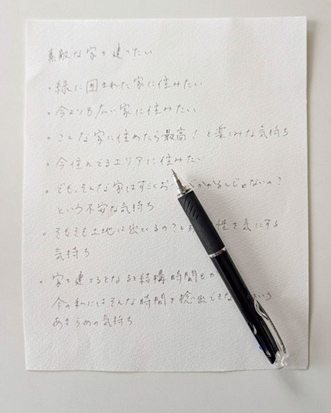 素敵な家を建てたい
・緑に囲まれた家に住みたい
・今よりも広い家に住みたい
・こんな家に住めたら最高！と楽しみな気持ち
・今住んでるエリアに住みたい
・でも、そんな家はすごくお かかるんじゃないの？
という不安な気持ち
・そもそも土地は出ているの？とか 性を気にする
気持ち
・家を建てるとなると結構時間もの
今の私にはそんな時間を捻出できな いう
あきらめの気持ち